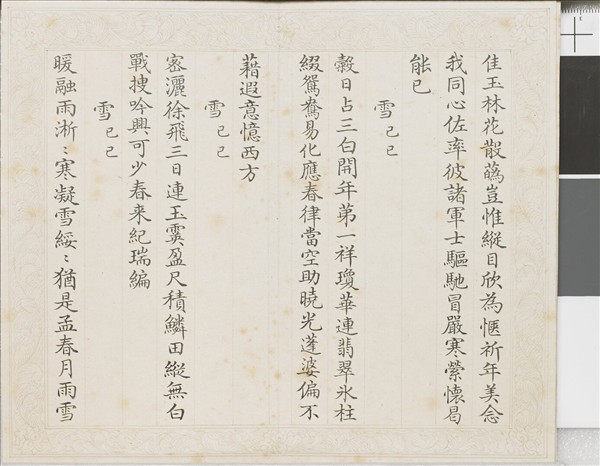 佳玉林花散蕊豈惟縱目欣為愜祈年美念
我同心佐率彼諸軍士驅馳冒嚴寒縈懷曷
能已
雪己己
穀日占三白開年第一祥瓊華連翡翠氷柱
綴鴛鴦易化應春律當空助曉光蓬婆偏不
藉遐意憶西方
雪己己
密灑徐飛三日連玉霙盈尺積鱗田縱無白
戰搜吟興可少春来紀瑞編
雪己己
暖融雨淅〻寒凝雪綏〻猶是孟春月雨雪